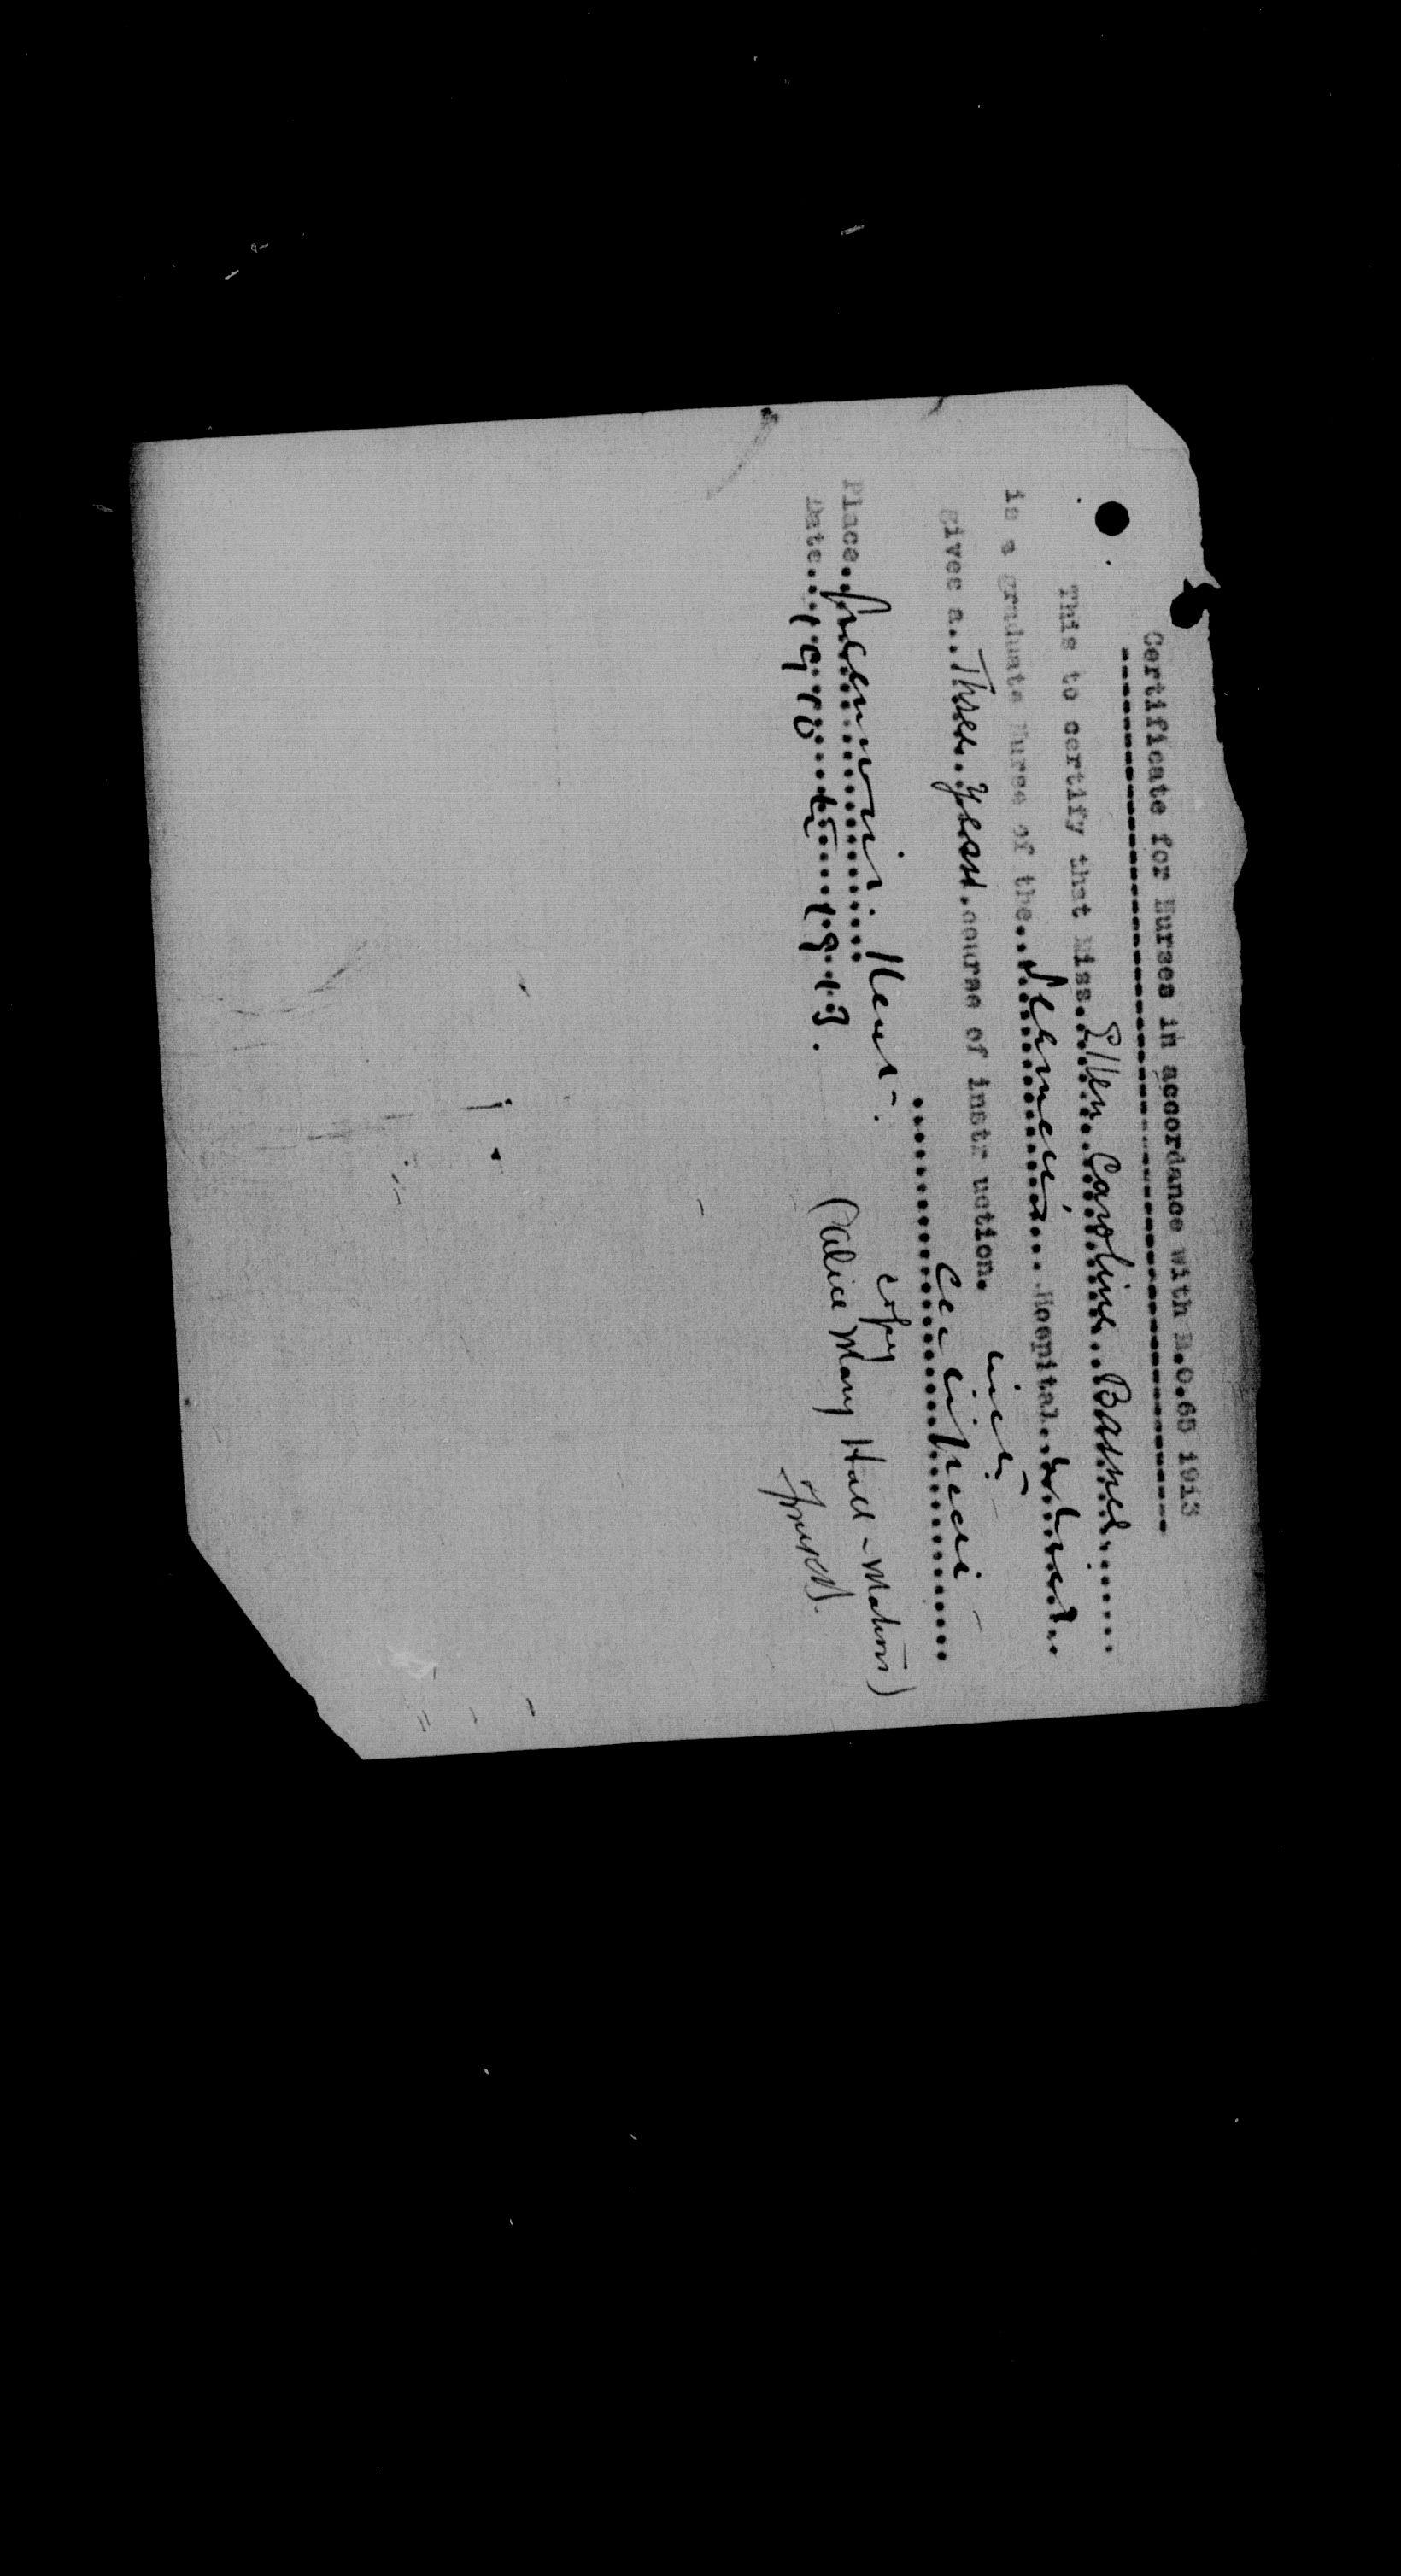 Certificate for Nurses in accordance with R.O.65 1913
This to certify that Miss..Ellen Caroline Bassnet
is a graduate Nurse of the..Seamen's...Hospital..
gives a..Three.Years.course of instr uction.
copy
Place..Greenwich Kent.
(Alice Mary Hall - Matron)
Date...1910 to 1913.